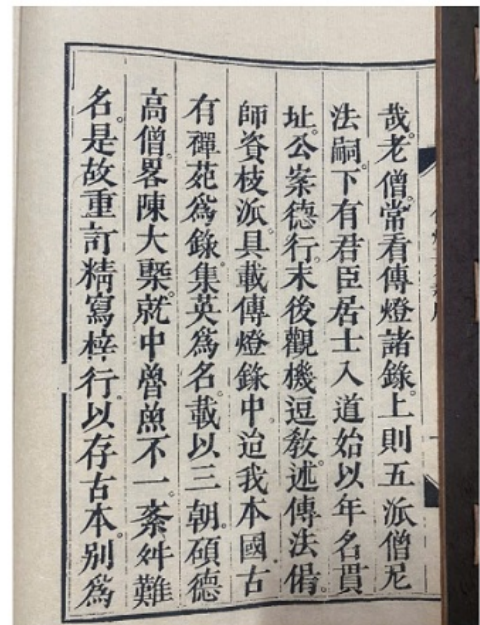 哉。老僧常看傳燈諸錄。上則五派僧尼
法嗣。下有君臣居士入道始以年名貫
址。公案德行。末後觀機逗教。述傳法偈。
師資枝派。具載傳燈錄中。迨我本國古
有禪苑爲錄。集英爲名。載以三朝。碩德
高僧。畧陳大槩。就中魯魚不一。紊舛難
名。是故重訂精寫梓行。以存古本。别爲